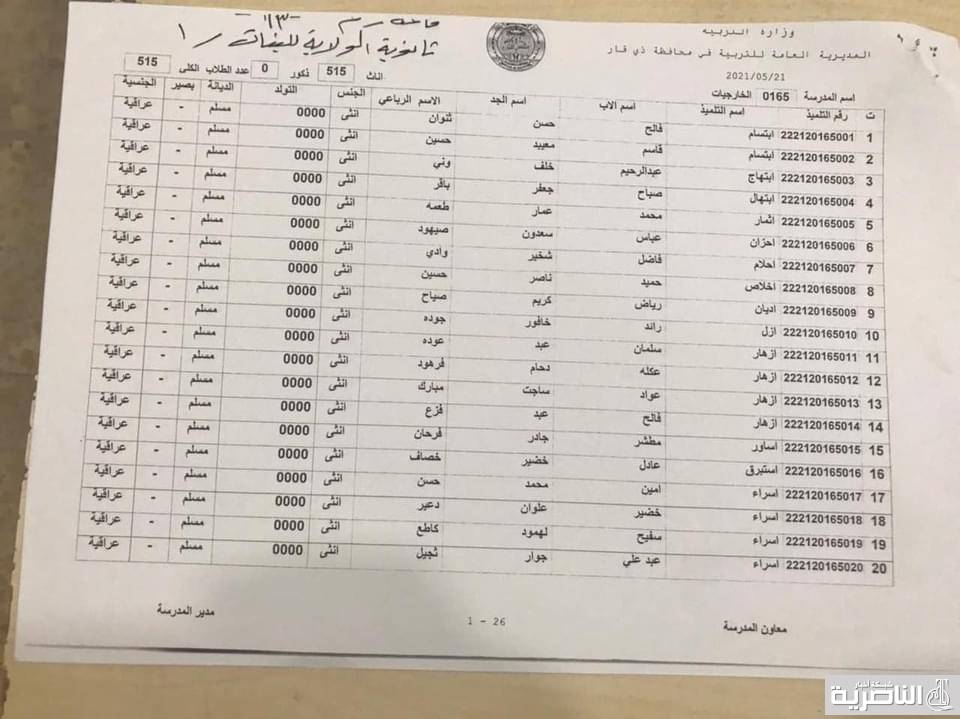 وزارة التربية
المديرية العامة للتربية في محافظة ذي قار
ثانوية الولاية للبنات / ١
2021/05/21
اسم المدرسة 0165 الخارجيات اناث 515 ذكور 0 عدد الطلاب الكلي 515
ت رقم التلميذ اسم التلميذ اسم الاب اسم الجد الاسم الرباعي الجنس التولد الديانة بصير الجنسية
1 222120165001 ابتسام فالح حسن ثنوان انثى 0000 مسلم - عراقية
2 222120165002 ابتسام قاسم معيبد حسين انثى 0000 مسلم - عراقية
3 222120165003 ابتهاج عبدالرحيم خلف وني انثى 0000 مسلم - عراقية
4 222120165004 ابتهال صباح جعفر باقر انثى 0000 مسلم - عراقية
5 222120165005 اثمار محمد عمار طعمه انثى 0000 مسلم - عراقية
6 222120165006 احزان عباس سعدون صيهود انثى 0000 مسلم - عراقية
7 222120165007 احلام فاضل شخير وادي انثى 0000 مسلم - عراقية
8 222120165008 اخلاص حميد ناصر حسين انثى 0000 مسلم - عراقية
9 222120165009 اديان رياض كريم صياح انثى 0000 مسلم - عراقية
10 222120165010 ازل رائد خافور جوده انثى 0000 مسلم - عراقية
11 222120165011 ازهار سلمان عبد عوده انثى 0000 مسلم - عراقية
12 222120165012 ازهار عكله دحام فرهود انثى 0000 مسلم - عراقية
13 222120165013 ازهار عواد ساجت مبارك انثى 0000 مسلم - عراقية
14 222120165014 ازهار فالح عبد فزع انثى 0000 مسلم - عراقية
15 222120165015 اساور مطشر جادر فرحان انثى 0000 مسلم - عراقية
16 222120165016 استبرق عادل خضير خصاف انثى 0000 مسلم - عراقية
17 222120165017 اسراء امين محمد حسن انثى 0000 مسلم - عراقية
18 222120165018 اسراء خضير علوان دعير انثى 0000 مسلم - عراقية
19 222120165019 اسراء سفيح لهمود كاطع انثى 0000 مسلم - عراقية
20 222120165020 اسراء عبد علي جوار ثجيل انثى 0000 مسلم - عراقية
معاون المدرسة 1 - 26 مدير المدرسة
شبكة اخبار
الناصرية